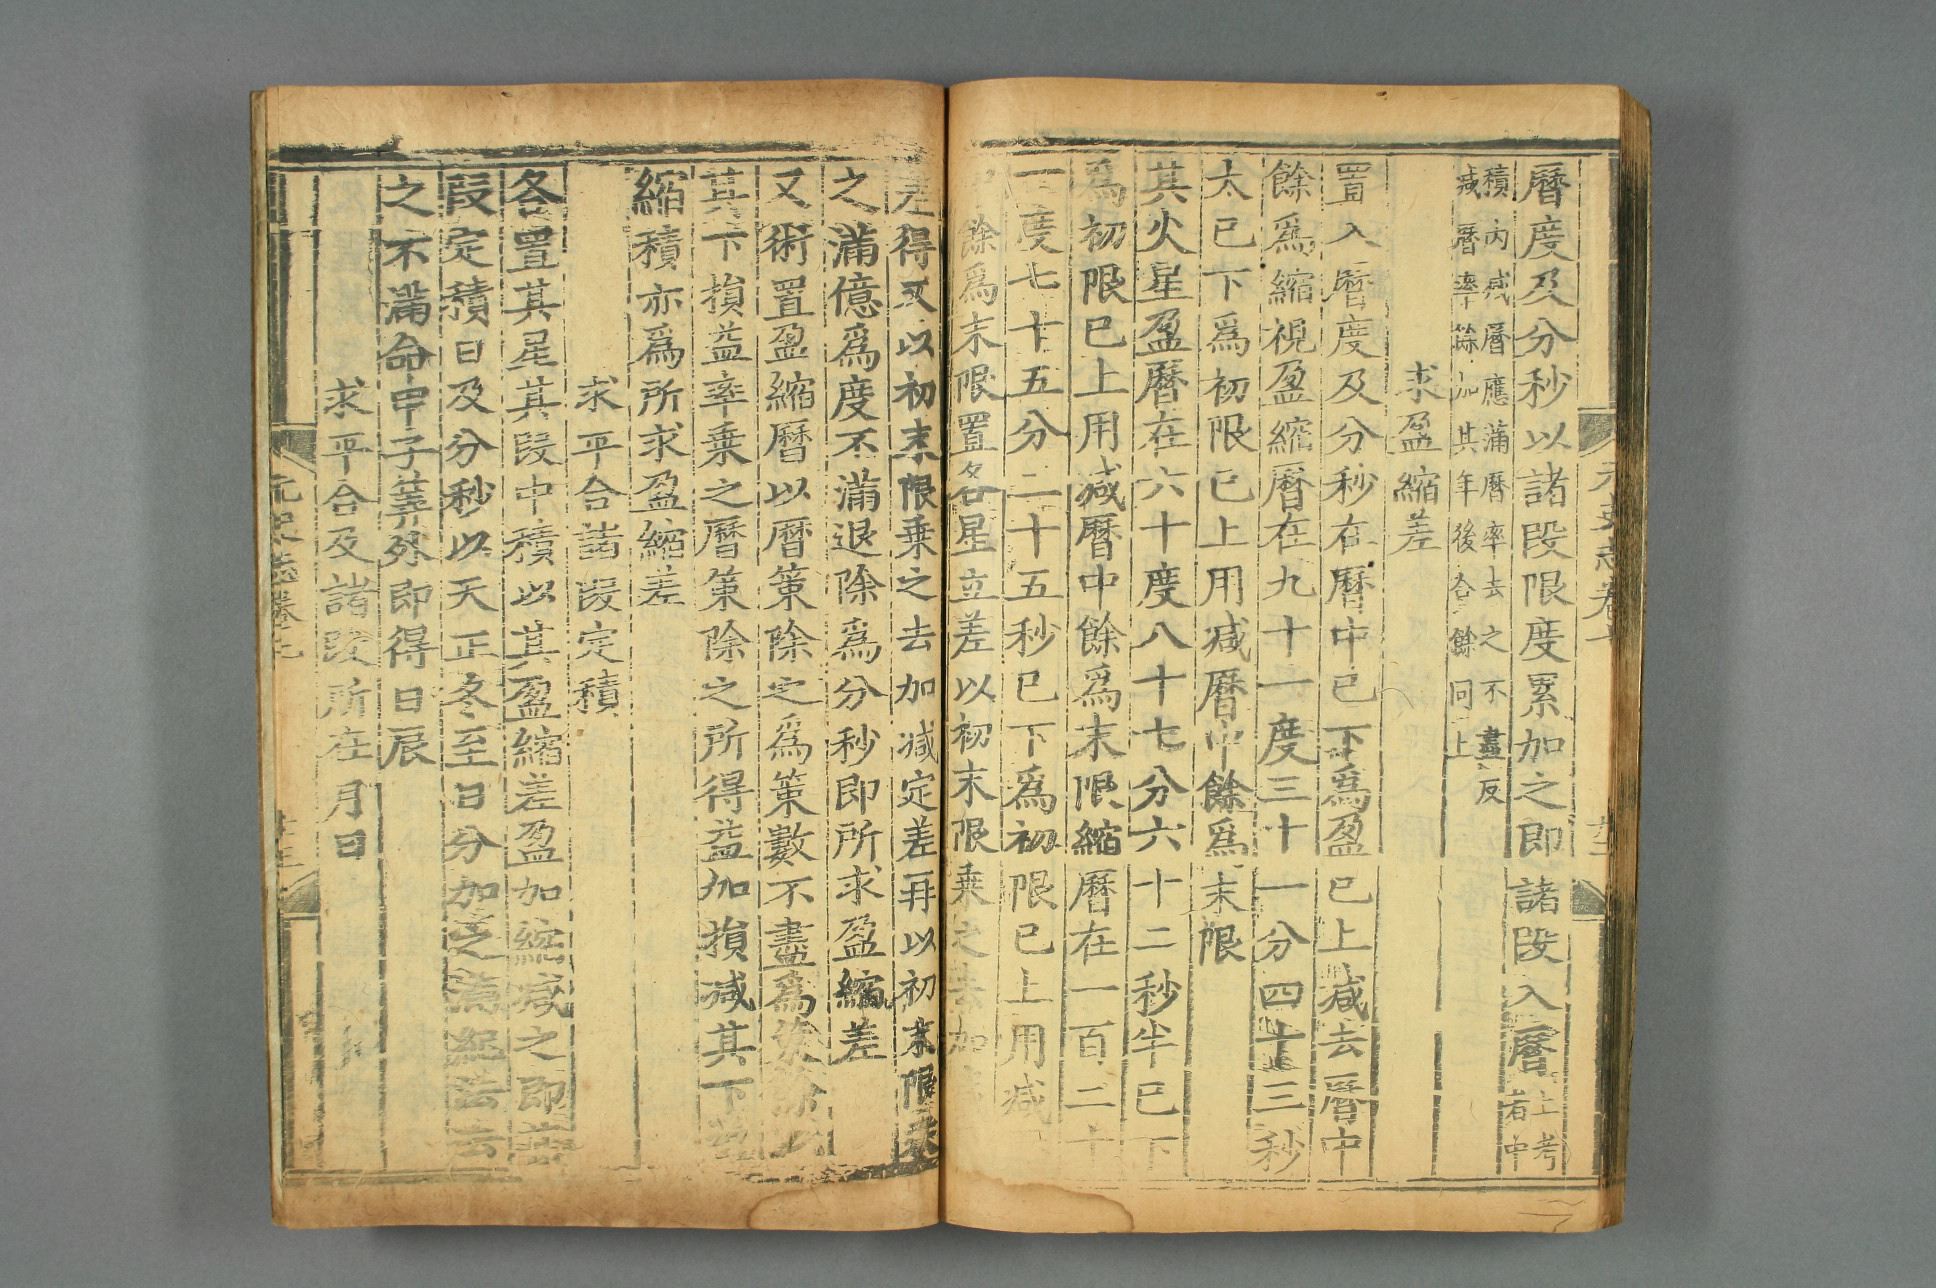 曆度及分秒以諸段限度累加之即諸段入曆上考者中
積內減曆應滿曆率去之不盡反
減曆率餘加其年後合餘同上
求盈縮差
置入曆度及分秒在曆中已下為盈已上減去曆中
餘爲縮視盈縮曆在九十一度三十一分四十三秒
太已下爲初限已上用減曆中餘爲末限
其火星盈曆在六十度八十七分六十二秒半已下
爲初限已上用減曆中餘爲末限縮曆在一百二十
一度七十五分二十五秒已下爲初限已上用減
餘爲末限置各星立差以初末限乗之去加
差得又以初末限乗之去加減定差再以初末限乗
之滿億爲度不滿退除爲分秒即所求盈縮差
又術置盈縮曆以曆策除之爲策數不盡爲策餘以
其下損益率乗之曆策除之所得益加損減其下
縮積亦爲所求盈縮差
求平合諸段定積
各置其星其段中積以其盈縮差盈加縮減之即
段定積日及分秒以天正冬至日分加之滿紀法去
之不滿命甲子筭外即得日辰
求平合及諸段所在月日
元史志卷七